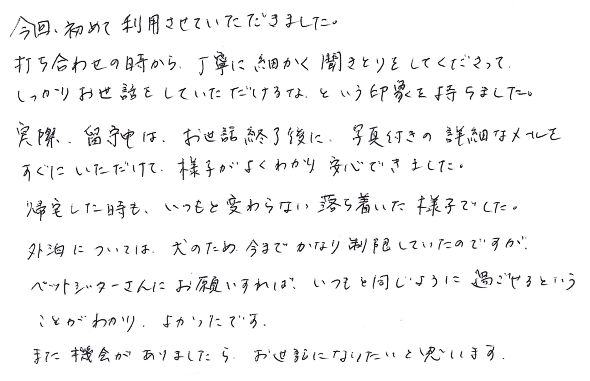 今回、初めて利用させていただきました。
打ち合わせの時から、丁寧に細かく聞きとりをしてくださって、
しっかりお世話をしていただけるな、という印象を持ちました。
実際、留守中は、お世話終了後に、写真付きの詳細なメールを
すぐにいただけて、様子がよくわかり安心できました。
帰宅した時も、いつもと変わらない落ち着いた様子でした。
外泊については、犬のため今までかなり制限していたのですが、
ペットシッターさんにお願いすれば、いつもと同じように過ごせるという
ことがわかり、よかったです。
また機会がありましたら、お世話になりたいと思います。